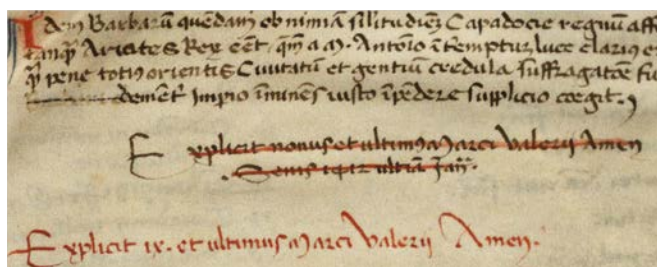 Idem Barbarū quēdam ob nimiā silitudiēȝ Capadocie regnum aff
tanqȝ Ariates Rex eēt, quē a M. Antōio īteremptū luce clarius e
qȝ pene totius orientis Civitatū et gentiū credula suffragatōe
demēt impio īminens iusto īpēdere supplicio coegit.
Explicit nonus et ultimus Marci Valerii Amen
ultīa
Explicit ix. et ultimus Marci Valerii Amen.